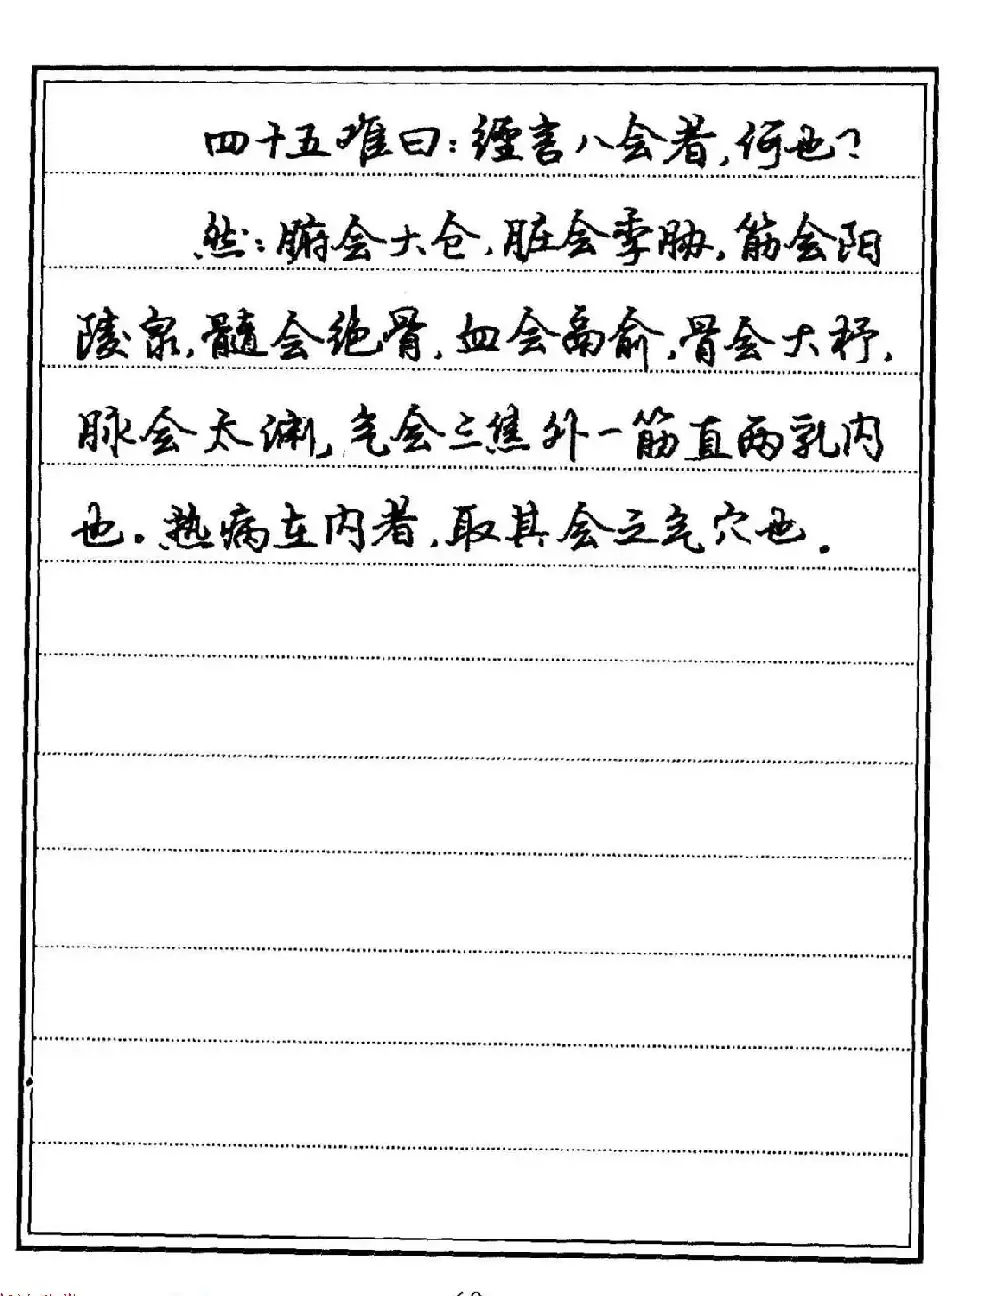 四十五难曰：经言八会者，何也？
然：腑会大仓，脏会季胁，筋会阳
陵泉，髓会绝骨，血会鬲俞，骨会大杼，
脉会太渊，气会三焦外一筋直两乳内
也。热病在内者，取其会之气穴也。